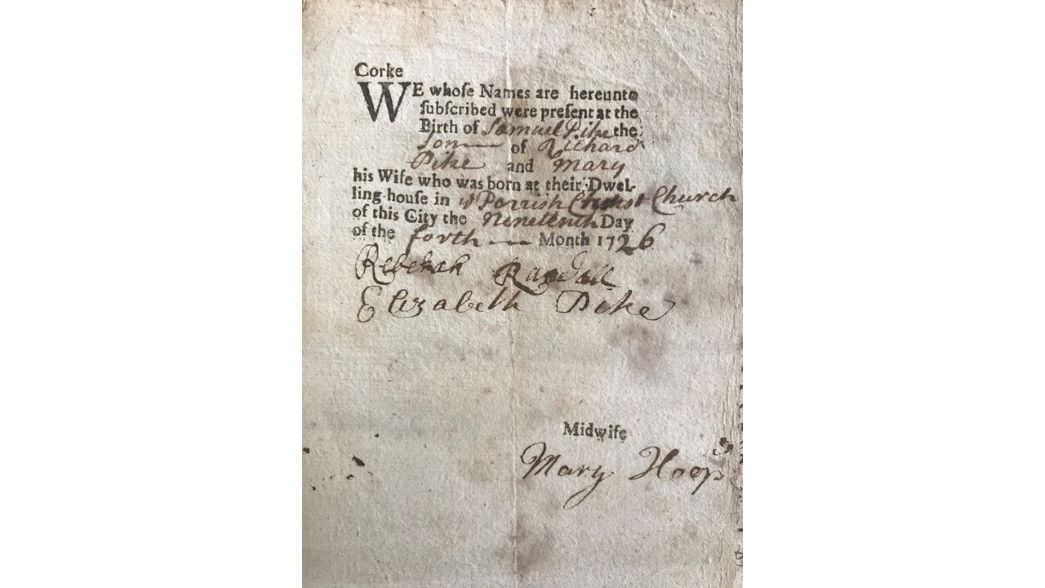 Corke
WE whoſe Names are hereunto
ſubſcribed were preſent at the
Birth of Samuel Pike the
Son of Richard
Pike and Mary
his Wife who was born at their Dwel-
ling-houſe in ye Parrish Christ Church
of this City the Nineteenth Day
of the forth Month 1726
Rebekah Randall
Elizabeth Pike
Midwife
Mary Hoop